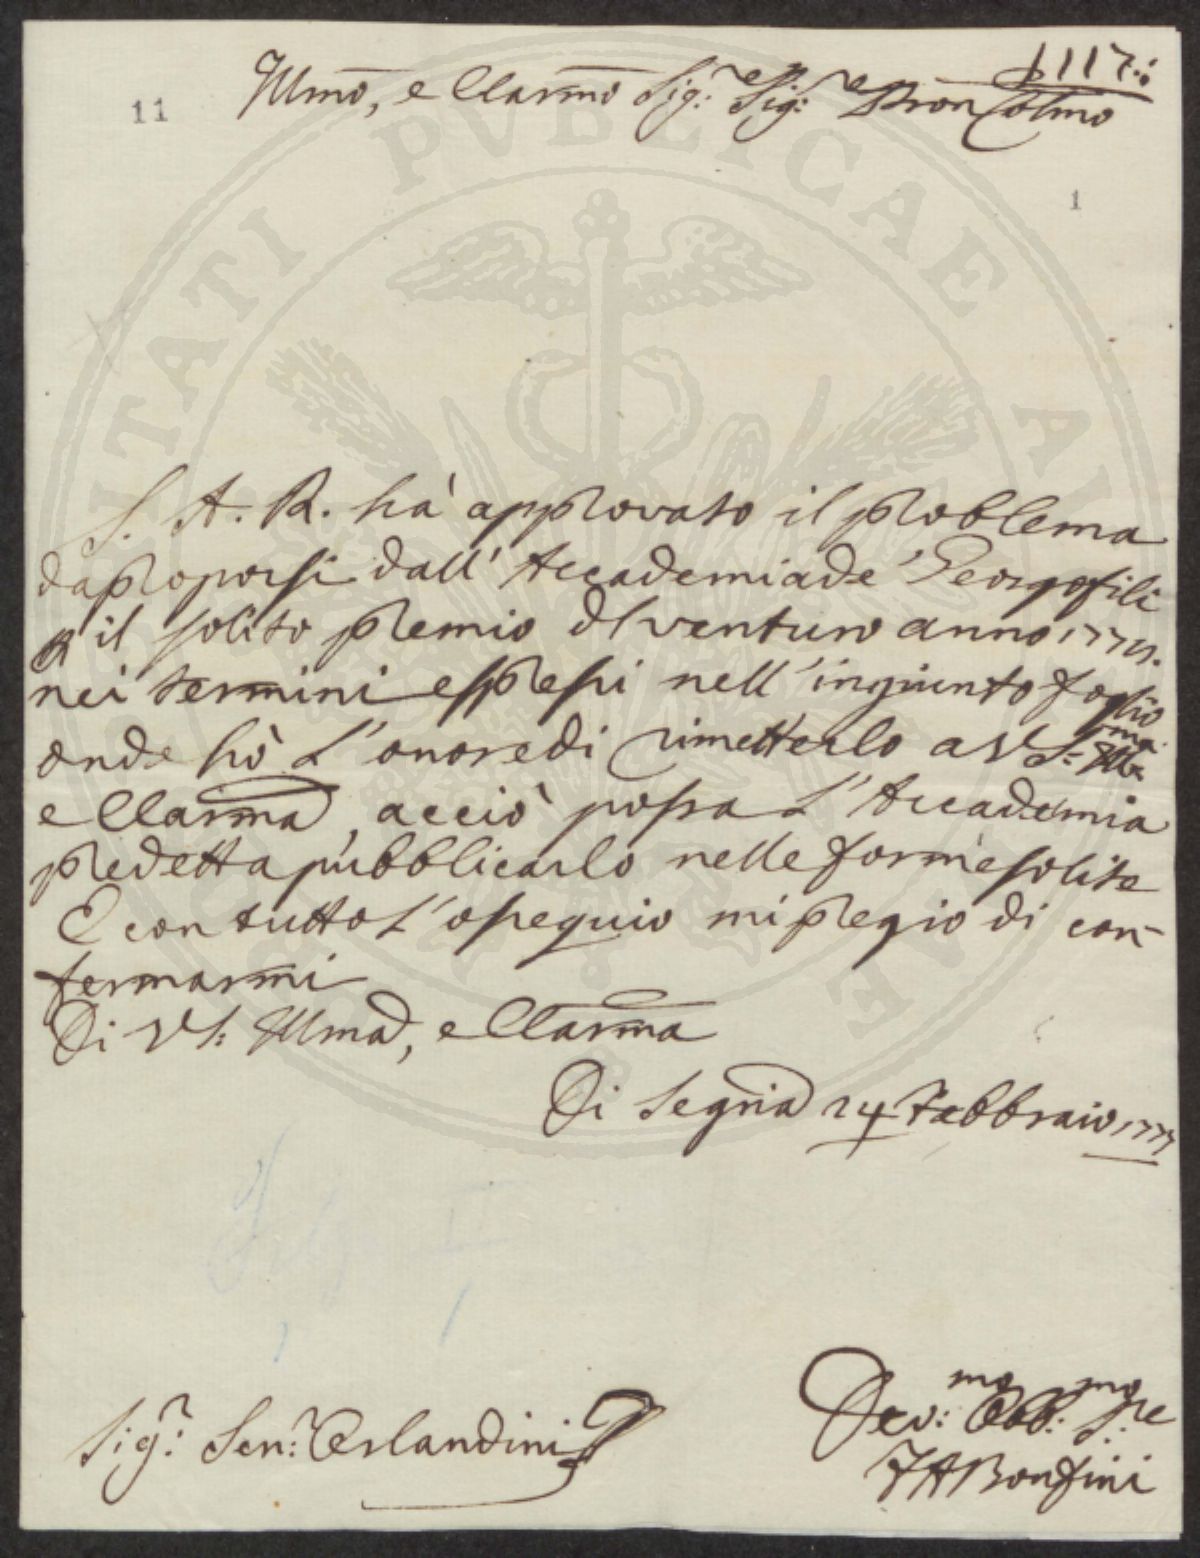 1117.
11
Illmo, e Clarmo Sig:re Sig:re Pron Colmo
1
S. A. R. hà approvato il problema
da proporsi dall' Accademia de' Georgofili
il solito premio del venturo anno
nei termini espressi nell' ingiunto foglio
onde hò l'onore di rimetterlo a V S: Illma
e Clarma, acciò possa l'Accademia
predetta pubblicarlo nelle forme solite
E con tutto l'ossequio mi pregio di con-
fermarmi
Di VS: Illma, e Clarma
Di Segria 24 Febbraio 1777
Sig:r Sen:r Orlandini
Dev:mo Obb:mo S:re
FABonfini
PVBLICAE